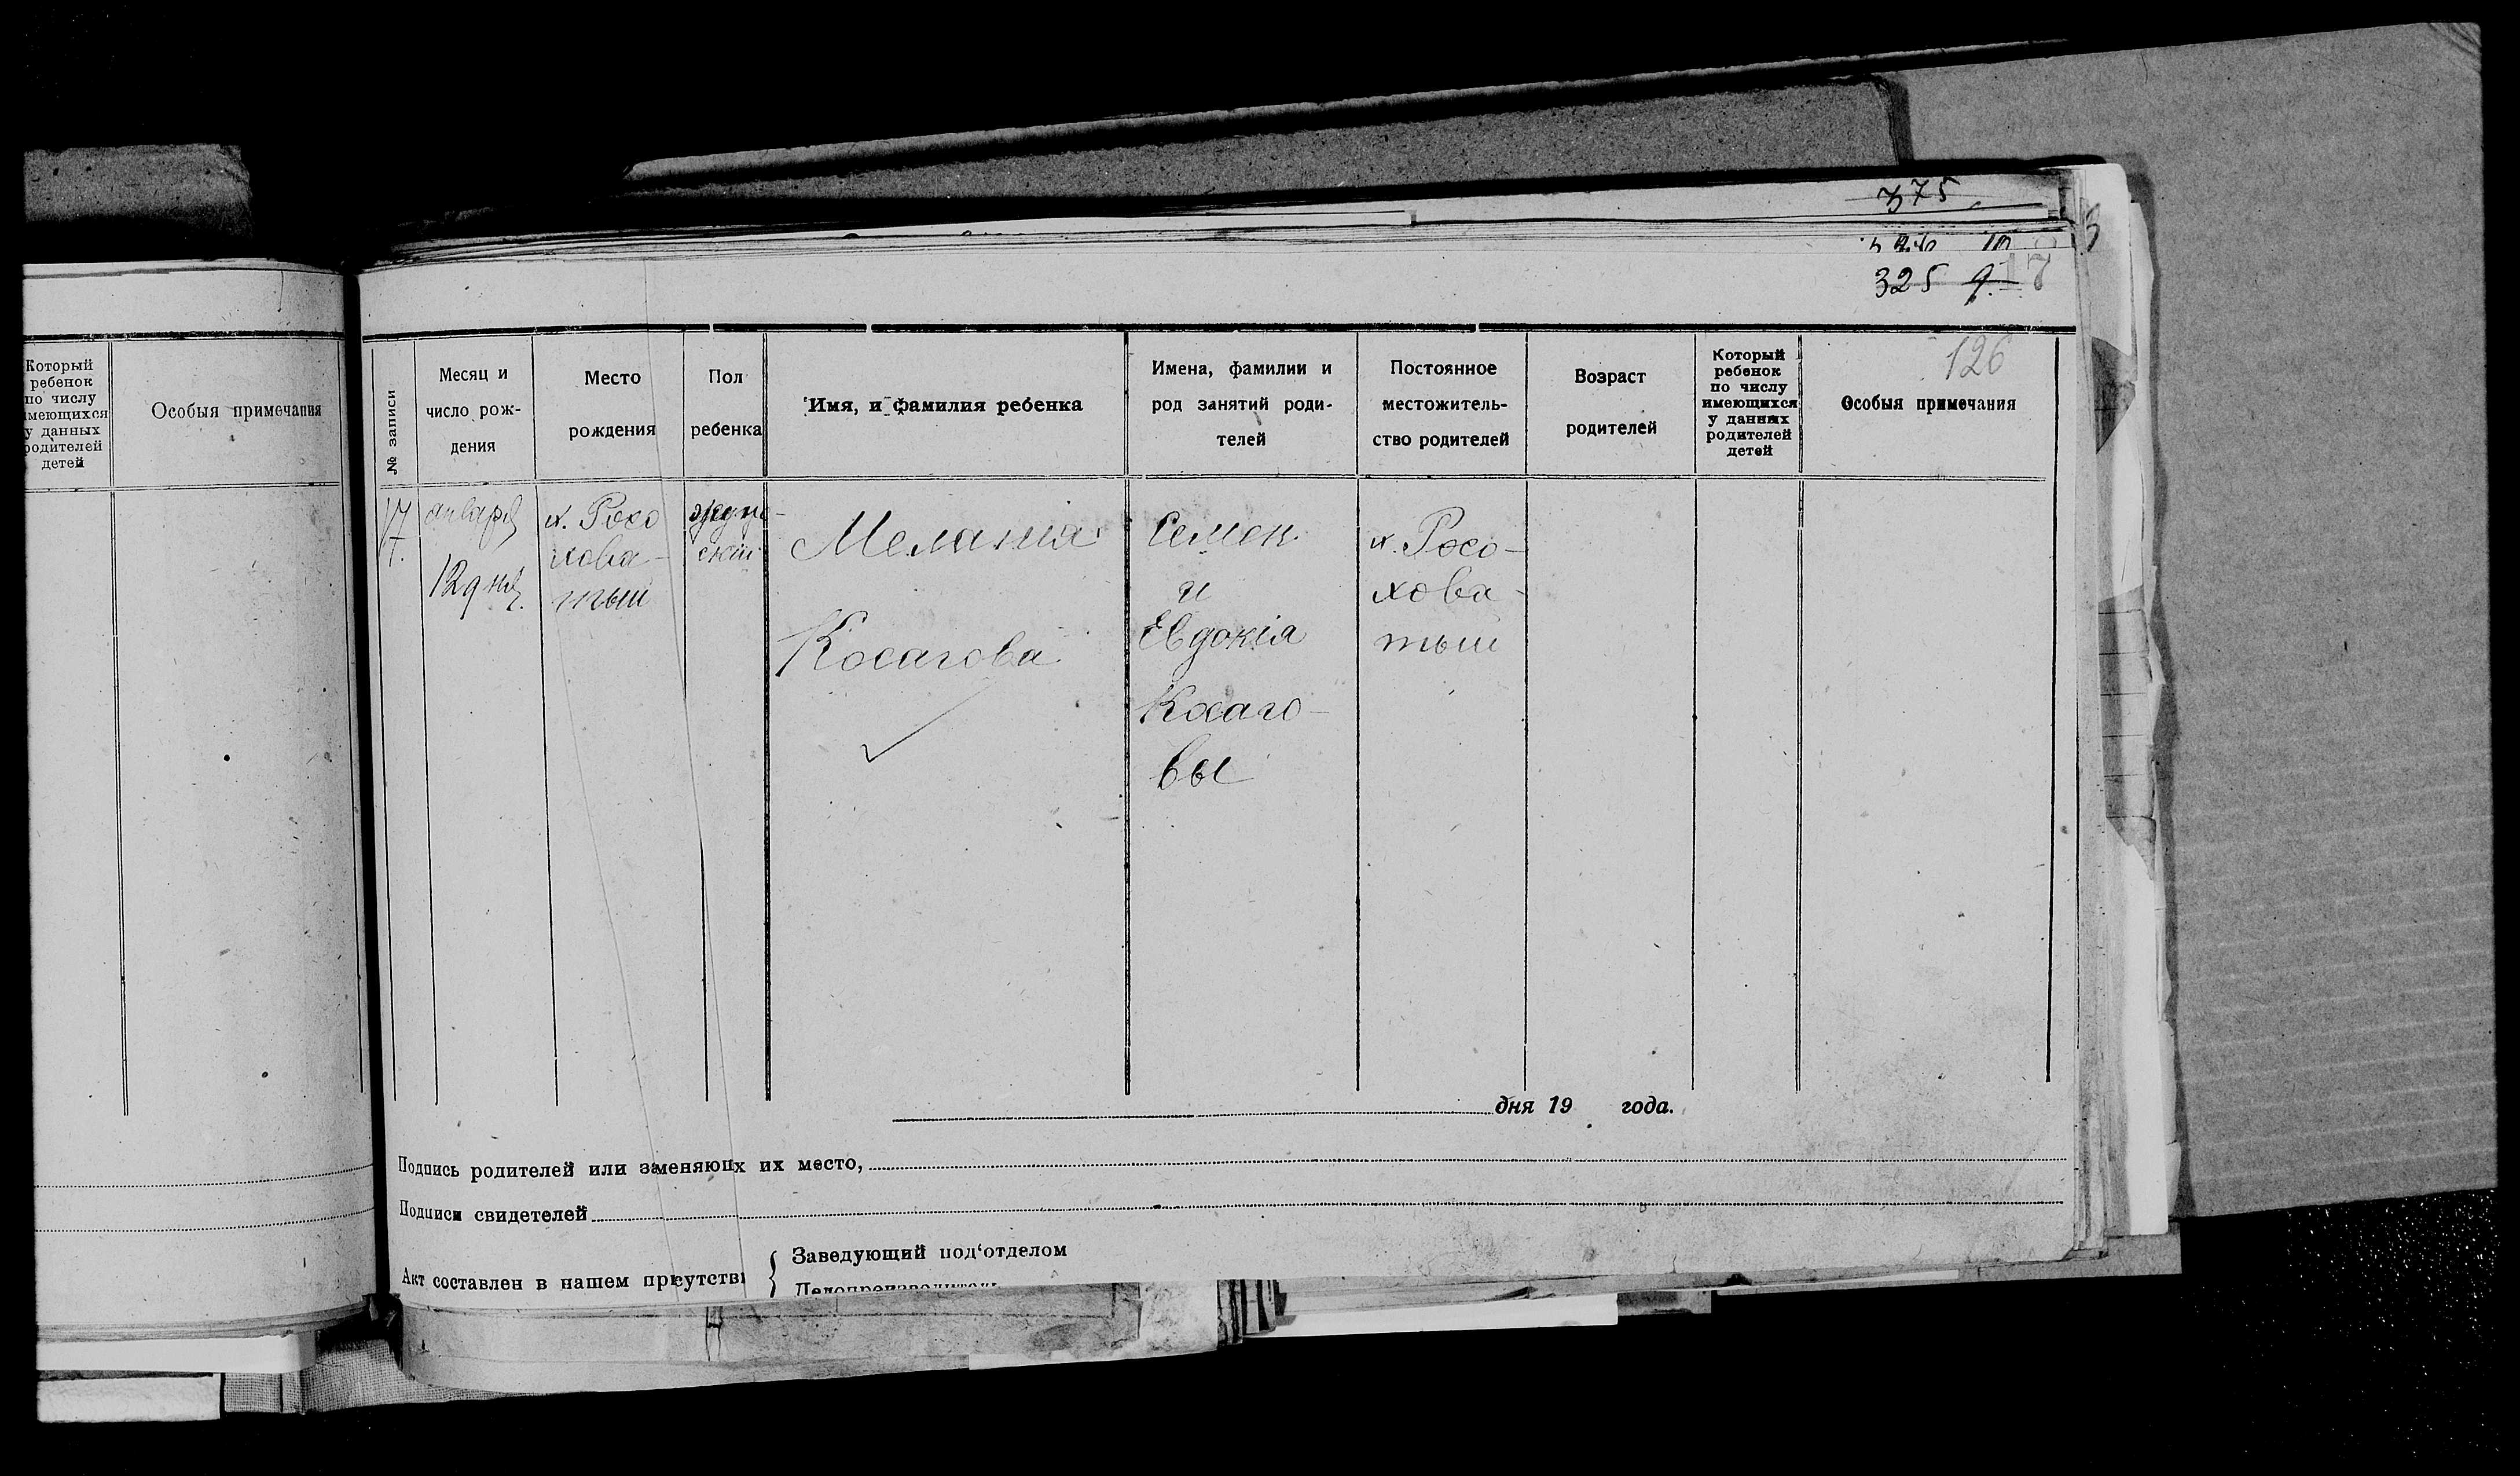 375
325 9. 17
126
Который
ребенок
по числу
имеющихся
у данных
родителей
детей
Особыя примечания
№ записи
Месяц и
число рож-
дения
Место
рождения
Пол
ребенка
Имя, и фамилия ребенка
Имена, фамилии и
род занятий роди-
телей
Постоянное
местожитель-
ство родителей
Возраст
родителей
Который
ребенок
по числу
имеющихся
у данных
родителей
детей
Особыя примечания
января
12 дня
х. Росо
хова-
тый
женс-
кий
Мелания
Косагова
Семен
и
Евдокія
Косаго-
вы
х. Росо-
хова-
тый
дня 19 года.
Подпись родителей или заменяющх их место,
Подписи свидетелей
Акт составлен в нашем присутстві
Заведующий под'отделом
Делопроизводитель